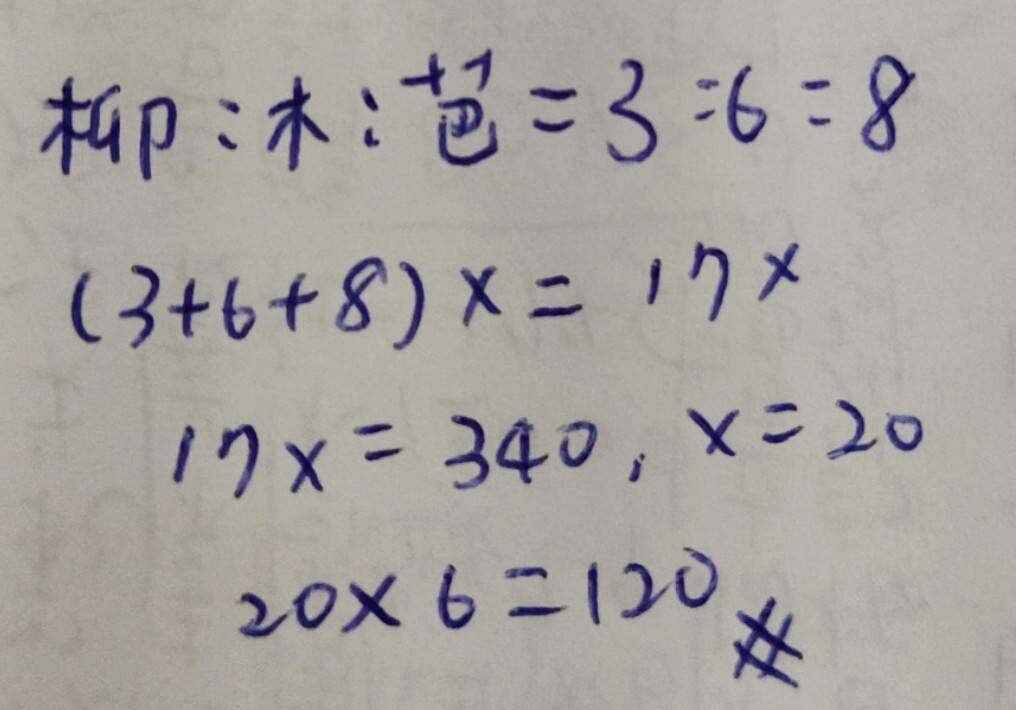 柳:木:芭=3:6:8
(3+6+8)x=17x
17x=340, x=20
20×6=120 #